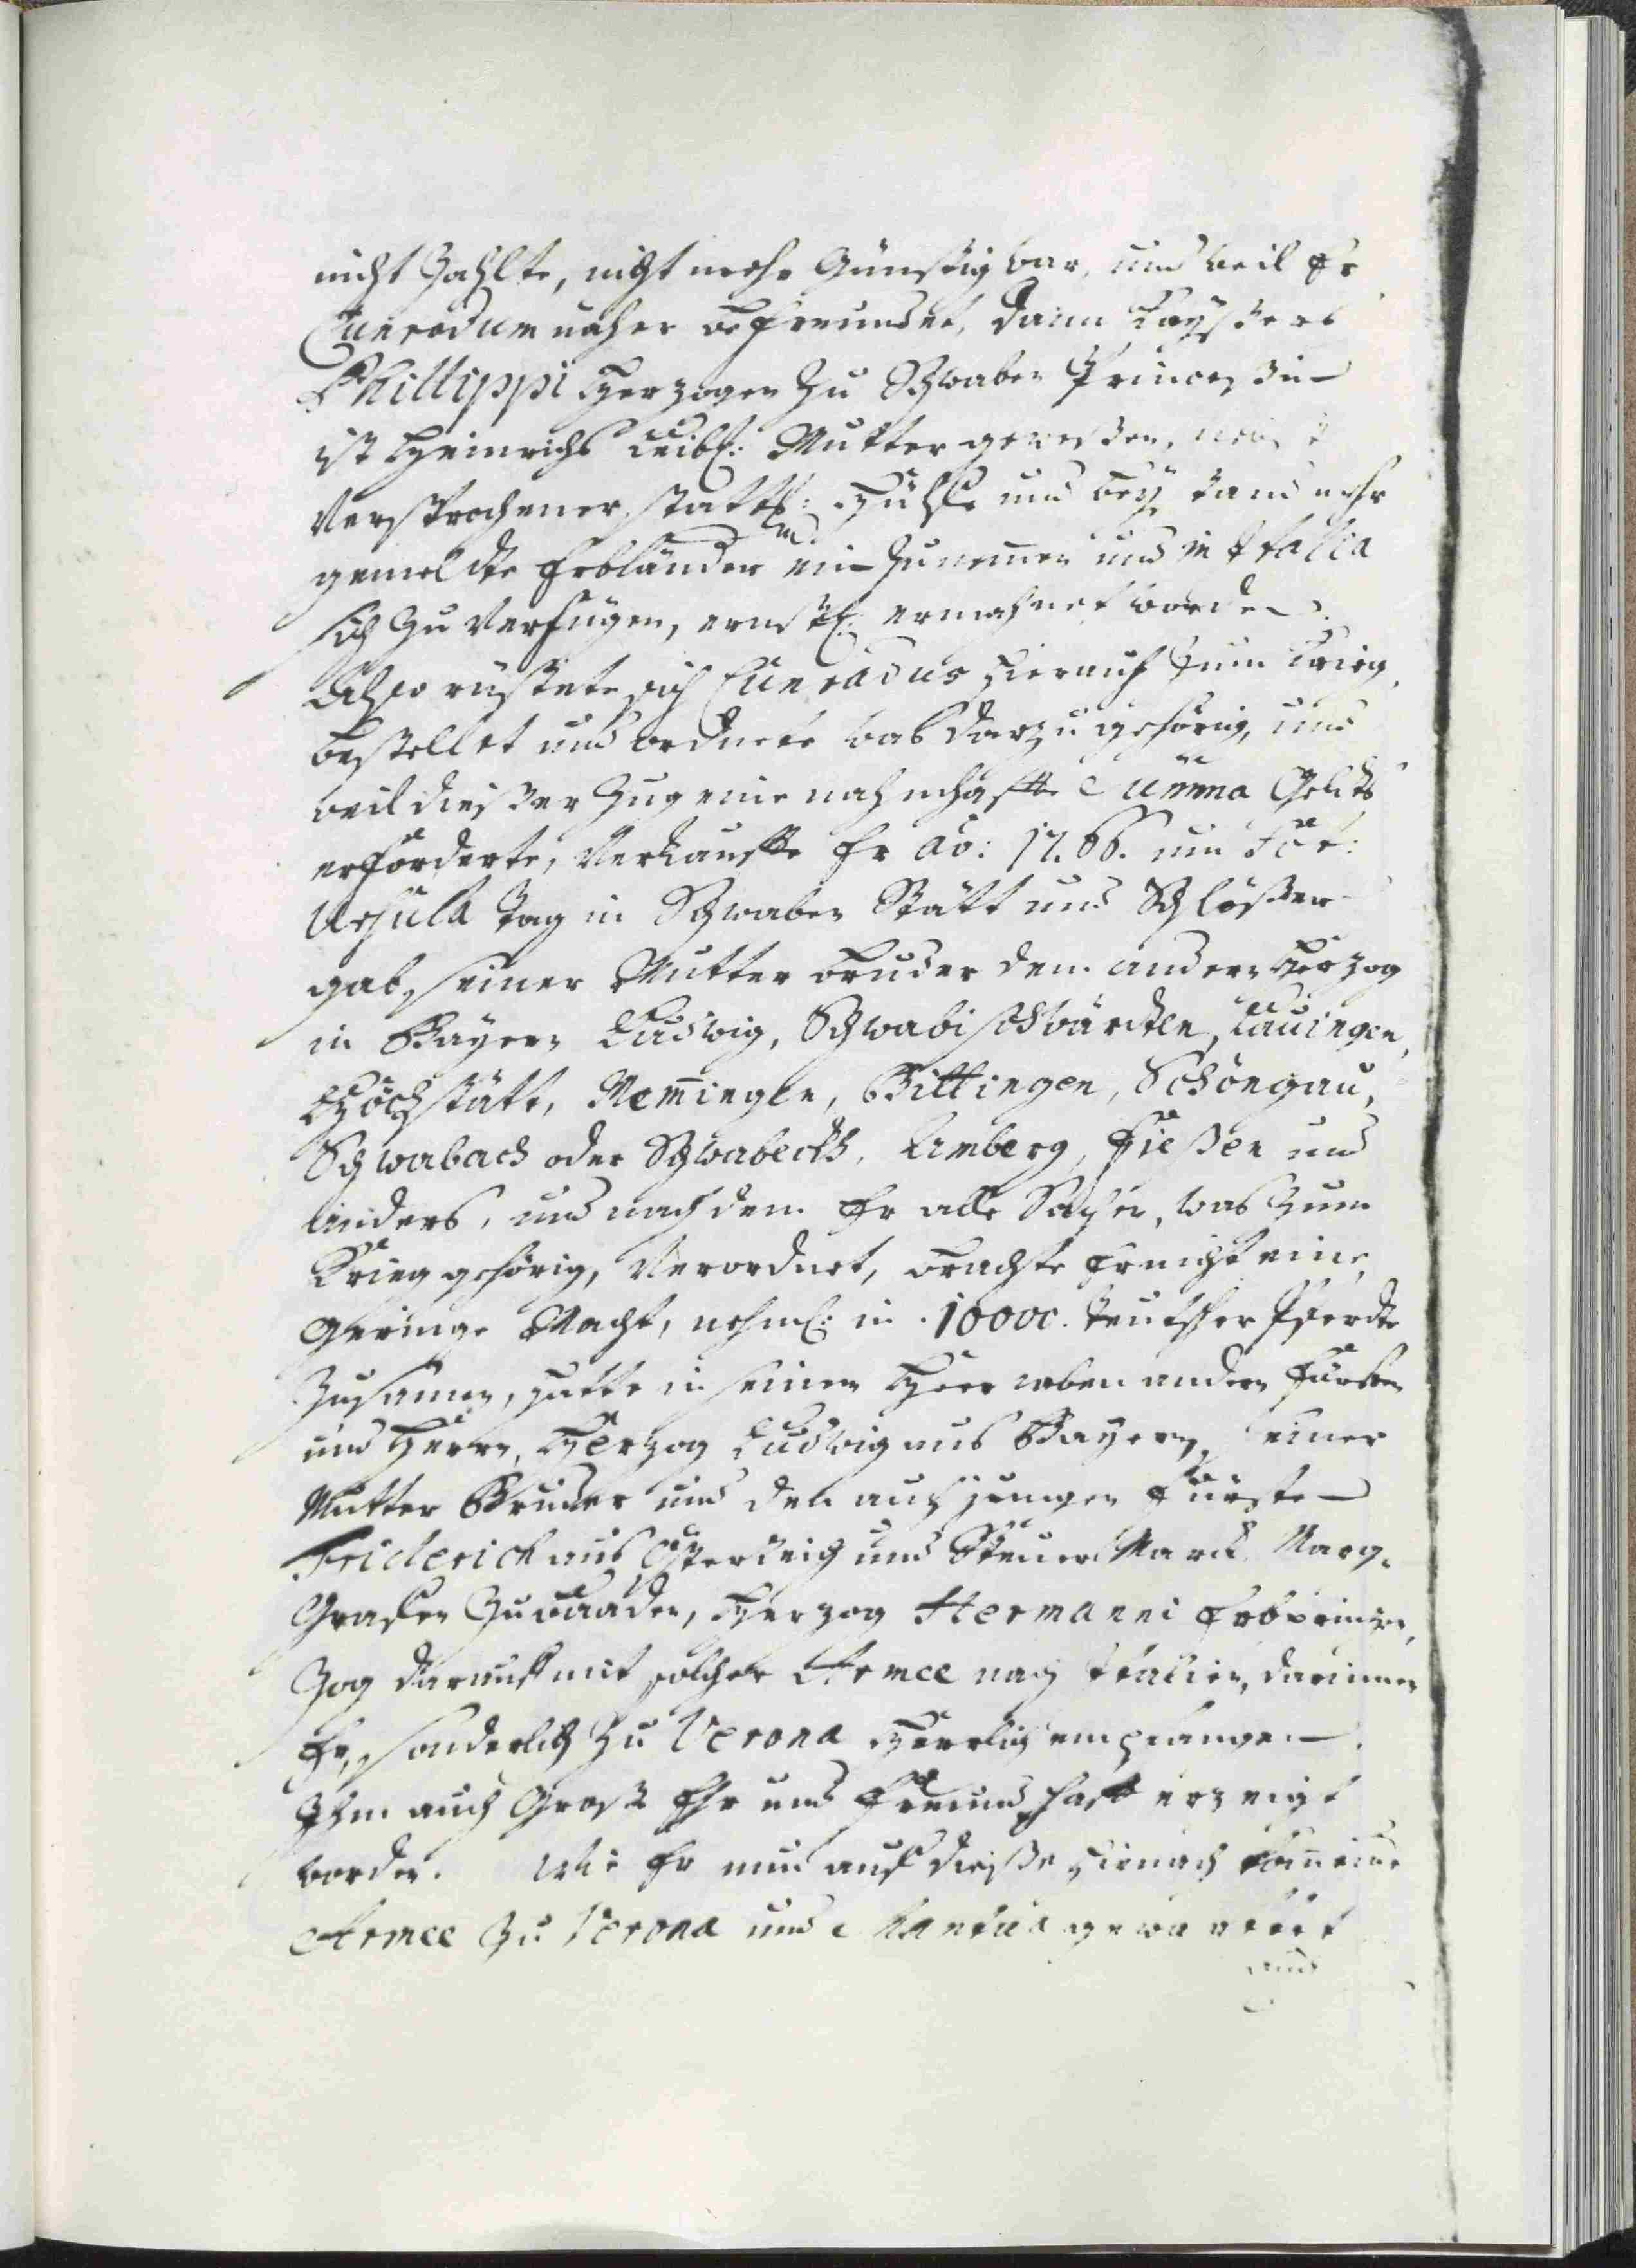 nicht Zahlte, nicht mehr Günstig war, und weil Er
Cunradum näher befreundet, dann Kayßers
Phillippi Herzogen zu Schwaben Princeßin
ist Heinrichs Leibl: Mutter geweßen, 
Versprochener stattl: Hülffe und beystand mehr
gemeldte Erbländer ein Zunemen und in Italia
sich zu Verfügen, ernstl: ermahnet worden.
Also rüstete sich Cunradus hierauf Zum Krieg,
bestellet und ordnete was darzu gehörig, und
weil dießer Zug eine nahmhaffte Summa Geldts
erforderte, Verkauffte Er aō: 1266. um Sct:
Ursula tag in Schwaben Stätt und Schlößer
gab seiner Mutter bruder dem andern Herzog
in Bayern Ludwig, Schwabischwärdten, Lauingen,
Höchstätt, Memingen, Bittingen, Schöngau,
Schwabach oder Schwabeckh, Amberg, Fießen und
anders, und nach dem Er alle Sachen, was Zum
Krieg gehörig, Verordnet, brachte Er nicht eine
Geringe Macht, nehml: in 10000. teutscher Pferdte
Zusamen, hatte in seinem Heer neben andern Fürsten
und Herrn, Herzog Ludwig aus Bayern, seiner
Mutter Bruder und den auch jungen Fürsten
Friderich aus Österreich und SteuerMarck Marg-
Graffen Zu baaden, Herzog Hermanni Erbprinzen,
Zog darauff mit solcher Armee nach Italien, darinnen
Er, sonderlich Zu Verona Herrlich empfangen
Ihm auch Große Ehr und Freundschafft erzeigt
worden. Wie Er nun auf dieße hienach 
Armee Zu Verona und Mantua gewartet
und